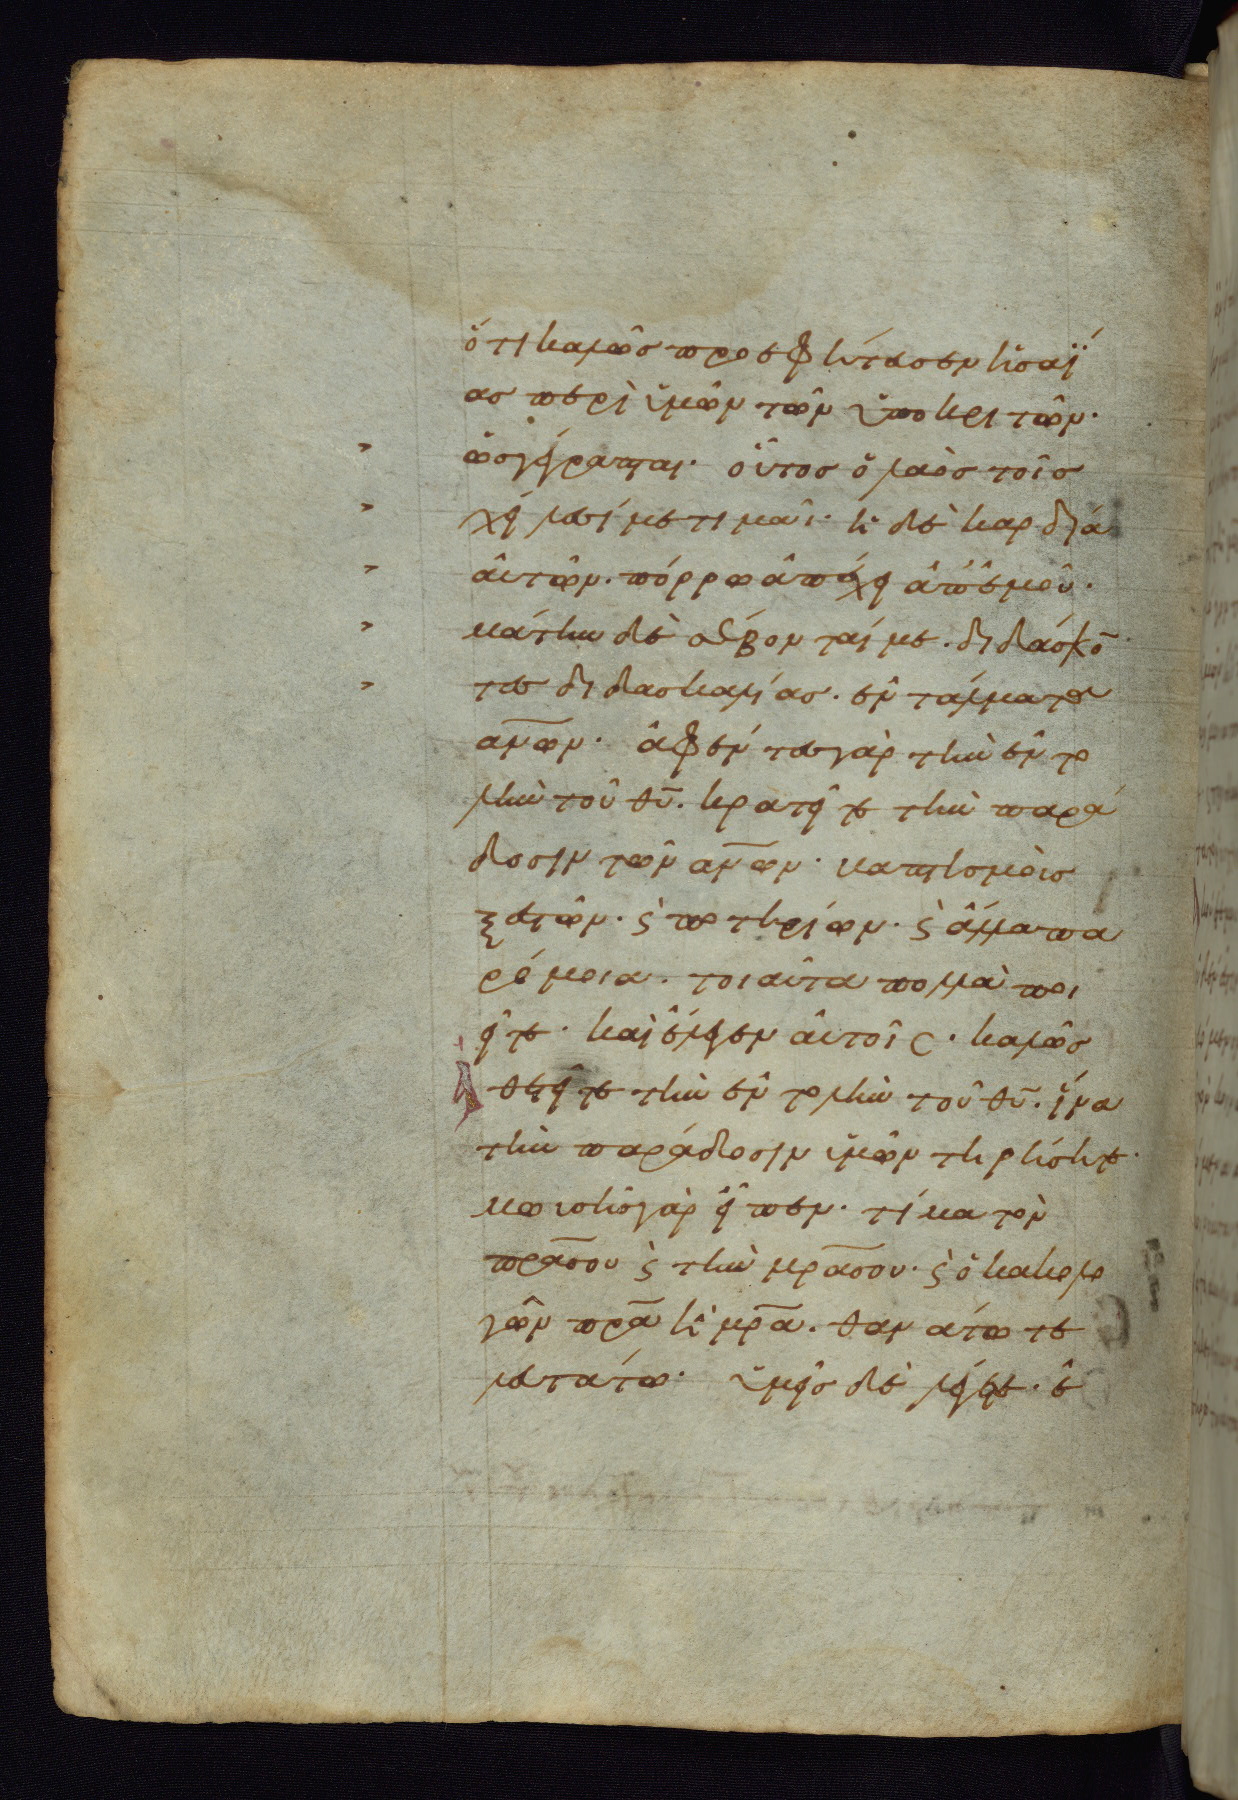 ὅτι καλῶς προεφήτευσεν ἡσαΐ
ας περὶ ὑμῶν τῶν ὑποκριτῶν·
ὡς γέγραπται· οὗτος ὁ λαὸς τοῖς
χείλεσί με τιμᾶι· ἡ δὲ καρδία
αὐτῶν· πόρρω ἀπέχει ἀπ' ἐμοῦ·
μάτην δὲ σέβονταί με· διδάσκο̄
τες διδασκαλίας· ἐντάλματα
ἀν̅ων· ἀφέντες γὰρ τὴν ἐντο
λὴν τοῦ θ̅υ· κρατεῖτε τὴν παρά
δοσιν τῶν ἀν̅ων· βαπτισμοὺς
ξεστῶν· ϛ ποτηρίων· ϛ ἄλλα πα
ρόμοια· τοιαῦτα πολλὰ ποι
εῖτε· καὶ ἔλεγεν αὐτοῖς· καλῶς
ἀθετεῖτε τὴν ἐντολὴν τοῦ θ̅υ· ἵνα
τὴν παράδοσιν ὑμῶν τηρήσητε·
μωυσῆς γὰρ εἶπεν· τίμα τὸν
πρ̅α σου ϛ τὴν μρ̅α σου· ϛ ὁ κακολο
γῶν πρ̅α ἢ μρ̅α· θανάτω τε
λευτάτω· ὑμεῖς δὲ λέγετε· ἐ